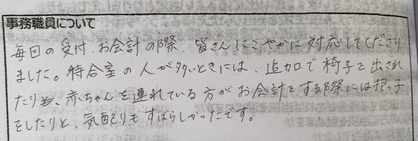 事務職員について
毎回の受付、お会計の際、皆さんにこやかに対応してくださり
ました。待合室の人が多いときには、追加で椅子を出され
たり、赤ちゃんを連れている方がお会計をする際には抱っこ
をしたりと、気配りもすばらしかったです。